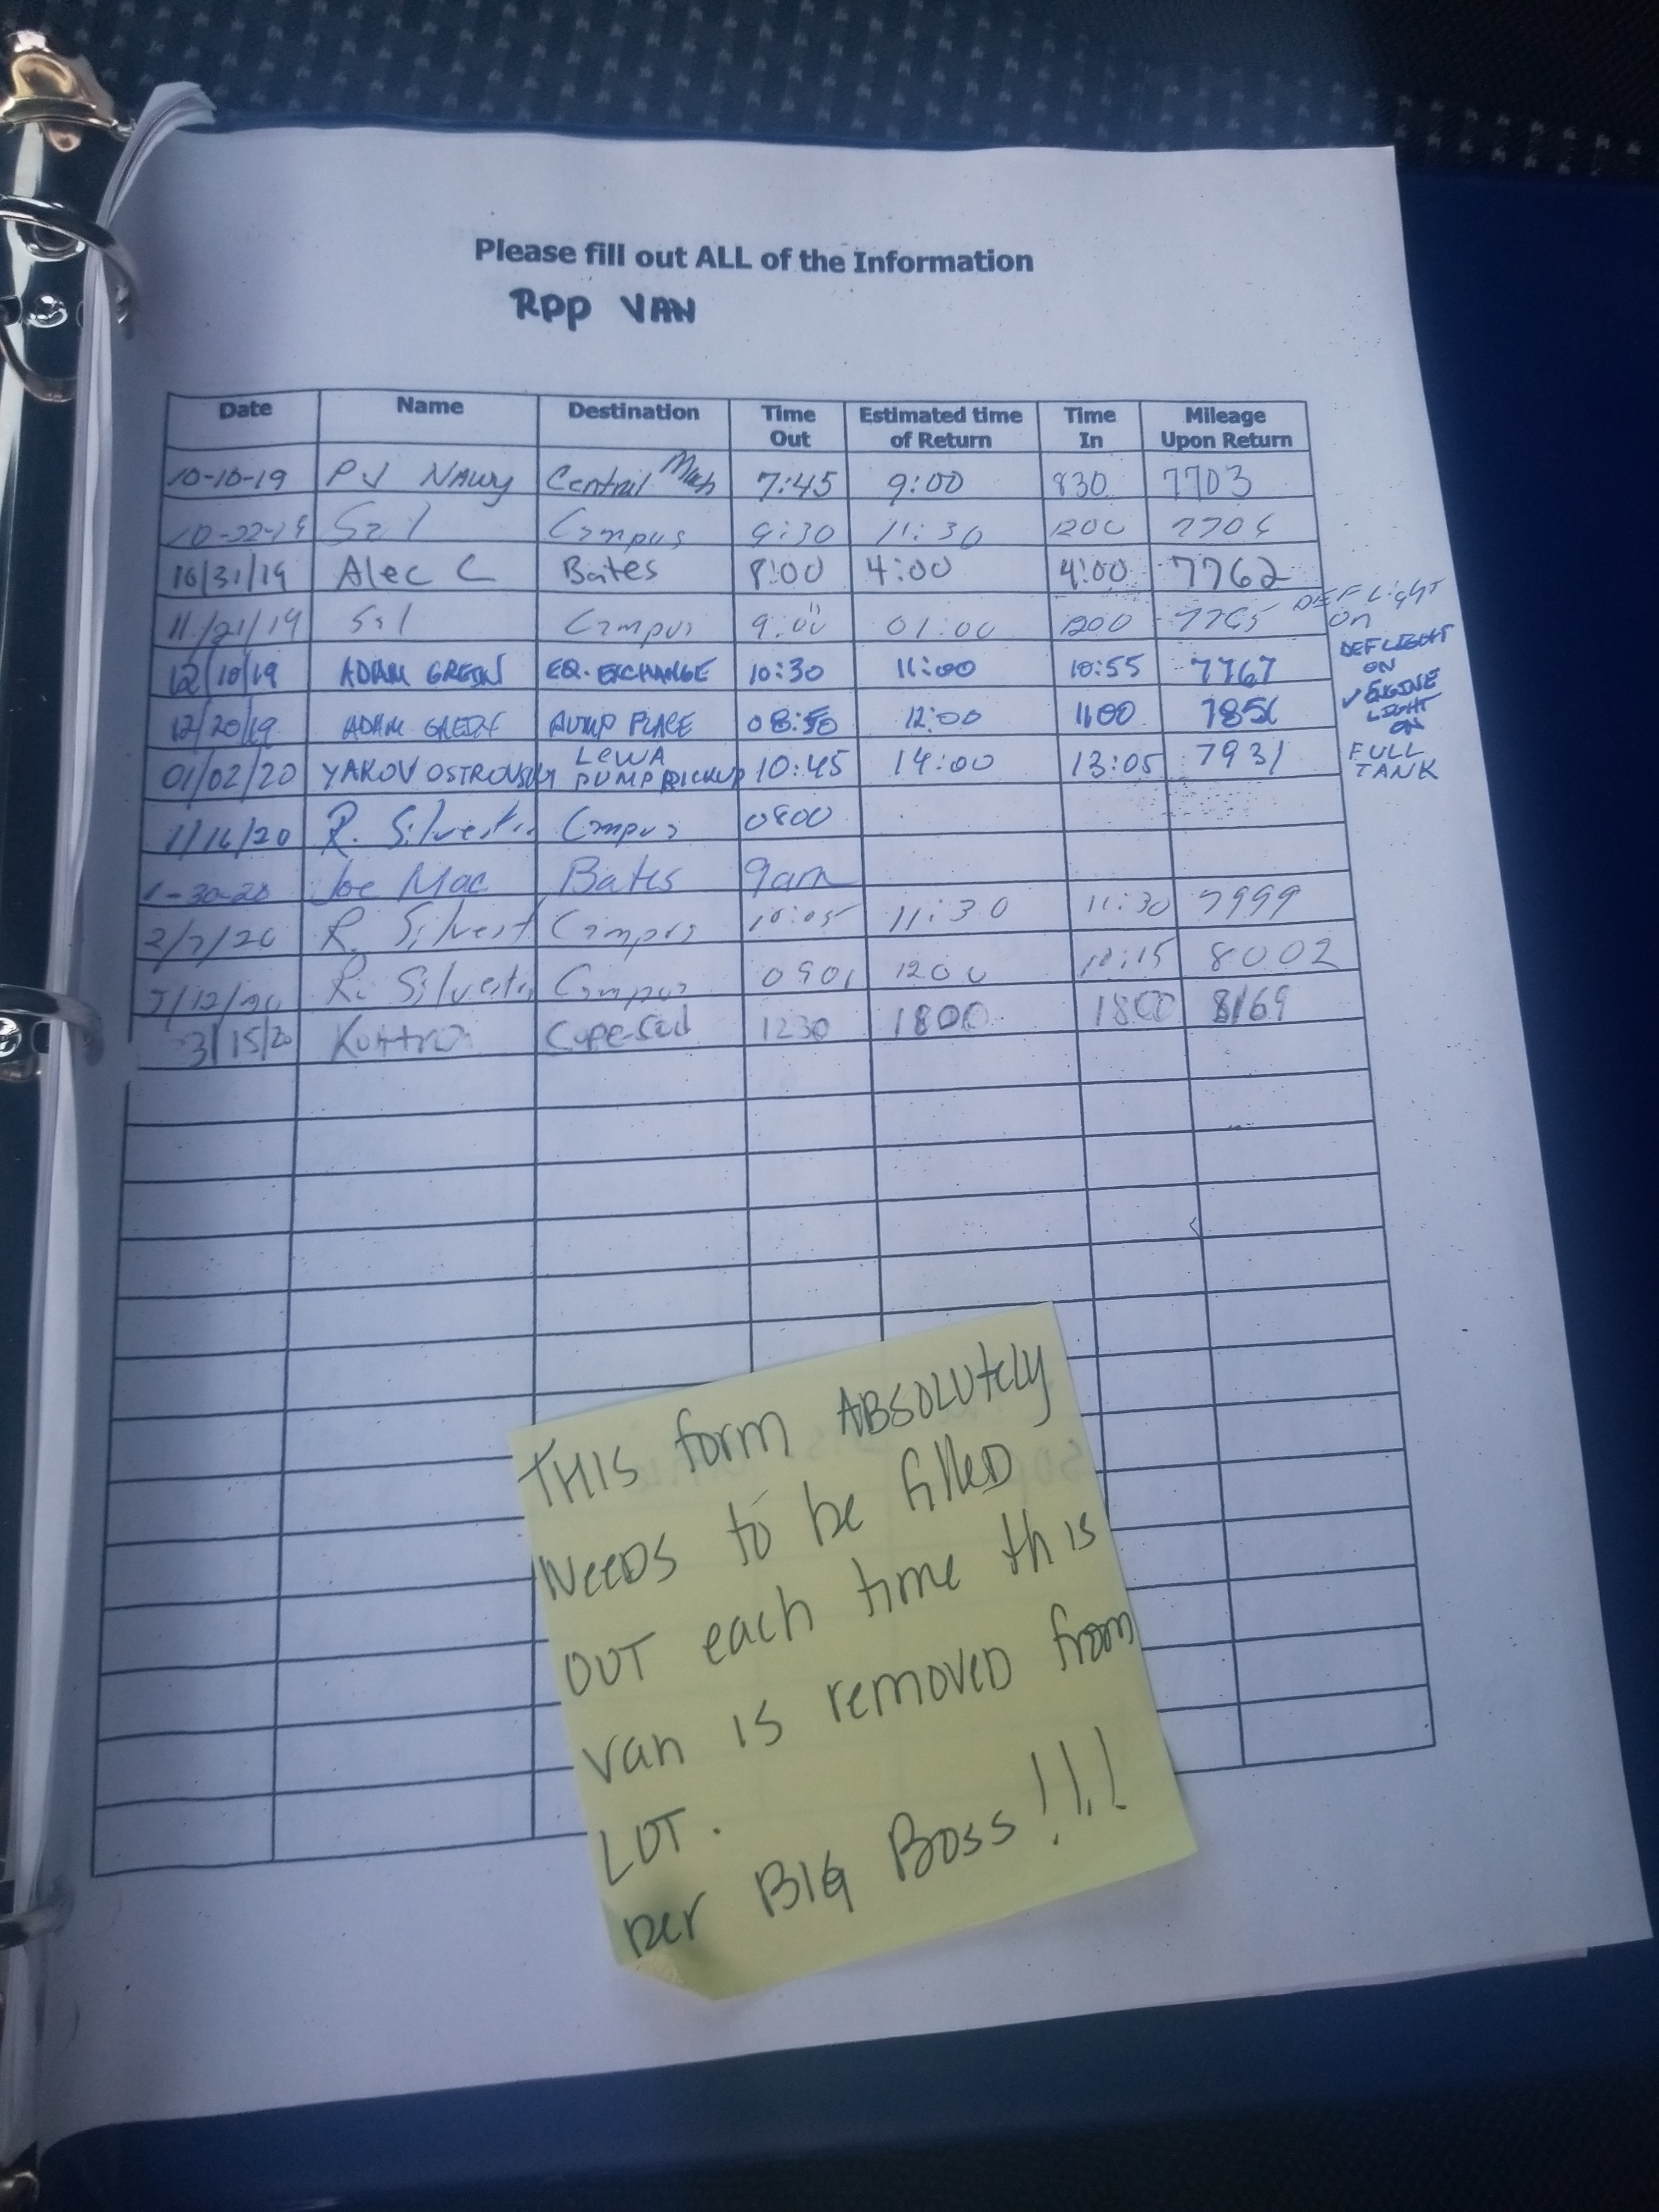 Please fill out ALL of the Information
RPP VAN
Date Name Destination Time Out Estimated time of Return Time In Mileage Upon Return
10-10-19 P.J Central Mach 7:45 9:00 830 7703
Sal Campus 9:30 11:30 1200
10/31/19 Alec C Bates 8:00 4:00 4:00 7762
11/21/19 Sal Campus 9:00 01:00 1200 7765 DEF Light on
12/10/19 ADAM GREEN EQ. EXCHANGE 10:30 11:00 10:55 7767 DEF LIGHT ON
12/20/19 ADAM GREEN PUMP PLACE 12:00 1100 ✓ ENGINE LIGHT ON
01/02/20 YAKOV OSTROVSKIY LEWA PUMP PICKUP 10:45 14:00 13:05 7931 FULL TANK
1/16/20 R. Campus 0800
1-30-20 Joe Mac Bates 9am
2/7/20 R. Campus 10:05 11:30 11:30 7999
R. Campus 1200 8002
3/15/20 1230 1800 1800 8169
THIS form ABSOLUtely
NeeDS to be fillED
OUT each time this
van is removeD from
LOT.
per BIG Boss!!!